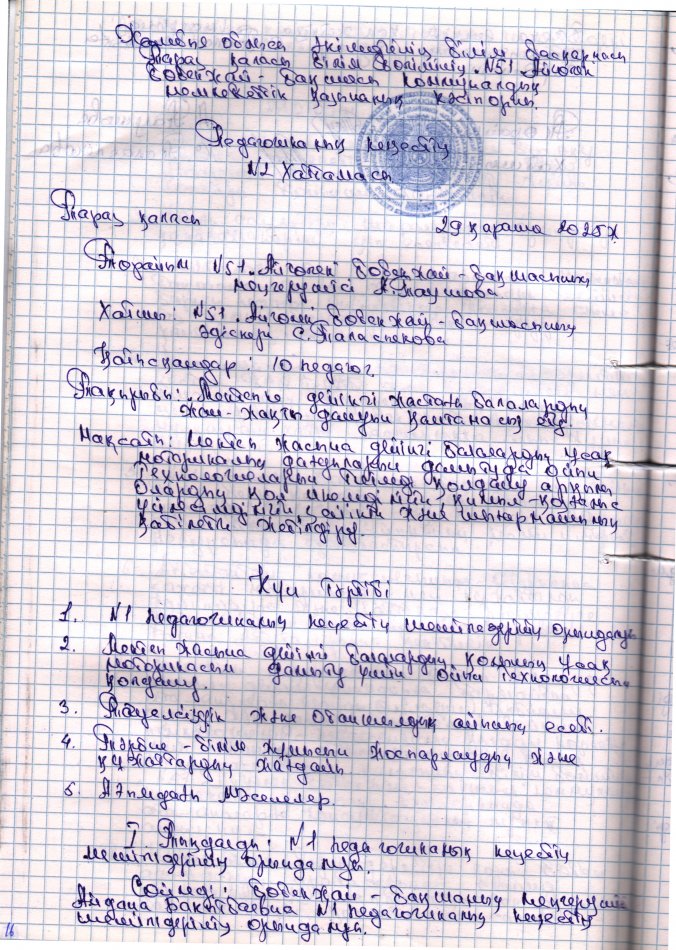 Жамбыл облысы әкімдігінің білім басқармасы
Тараз қаласы білім бөлімінің №51 "Айгөлек
бөбекжай - бақшасы коммуналдық
мемлекеттік қазыналық кәсіпорны.
Педагогикалық кеңестің
№2 Хаттамасы
Тараз қаласы 29 қараша 2025ж
Төрайым №51 "Айгөлек" бөбекжай - бақшасының
меңгерушісі А.
Хатшы: №51 "Айгөлек бөбекжай - бақшасының
әдіскері С.Таласпекова
Қатысқандар: 10 педагог.
Тақырыбы: Мектепке дейінгі жастағы балалардың
жан-жақты дамуын қамтамасыз ету.
Мақсаты: Мектеп жасына дейінгі балалардың ұсақ
моторикалық дағдыларын дамытуда ойын
технологиясын тиімді қолдану арқылы
олардың қол икемділігін, қимыл-қозғалыс
үйлесімділігін, және шығармашылық
қабілетін жетілдіру.
Күн тәртібі
1. №1 педагогикалық кеңестің шешімдерінің орындалуы
2. Мектеп жасына дейінгі балалардың қолының ұсақ
моторикасын дамыту үшін ойын технологиясын
қолдану.
3. Тәуелсіздік және Отаншылдық айының есебі.
4. Тәрбие - білім жұмысын жоспарлаудың және
құжаттардың жағдайы
5. Ағымдағы мәселелер.
I Тыңдалды: №1 педагогикалық кеңестің
шешімдерінің орындалуы.
Сөйледі: Бөбекжай - бақшаның меңгерушісі
Айдана №1 педагогикалық кеңестің
шешімдерінің орындалуы.
16